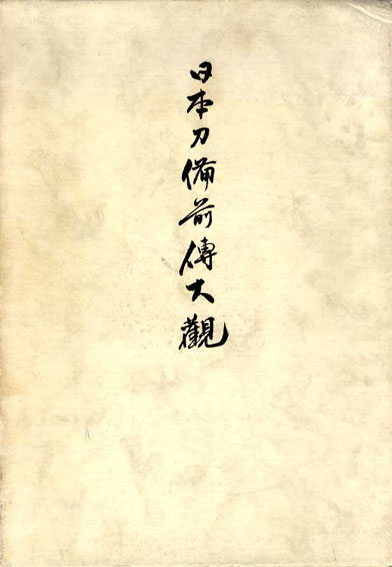 日本刀備前傳大觀